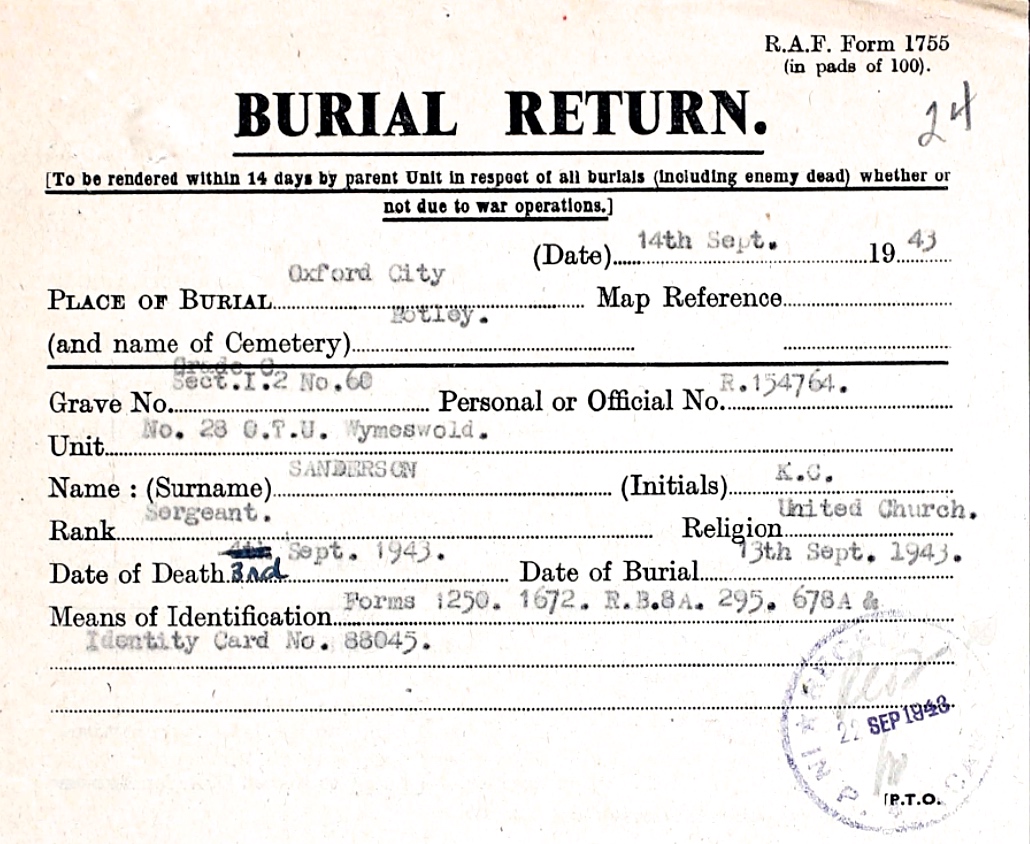 R.A.F. Form 1755
(in pads of 100).
24
BURIAL RETURN.
[To be rendered within 14 days by parent Unit in respect of all burials (including enemy dead) whether or
not due to war operations.]
(Date) 14th Sept. 19 43
Oxford City
PLACE OF BURIAL Map Reference
Botley.
(and name of Cemetery)
Grade C.
Sect.I.2 No.60 R.154764.
Grave No. Personal or Official No.
No. 28 O.T.U. Wymeswold.
Unit
SANDERSON K.C.
Name : (Surname) (Initials)
Sergeant. United Church.
Rank Religion
4th Sept. 1943. 13th Sept. 1943.
Date of Death 3nd Date of Burial
Forms 1250. 1672. R.B.8A. 295. 678A &
Means of Identification
Identity Card No. 88045.
22 SEP 1943
P.T.O.